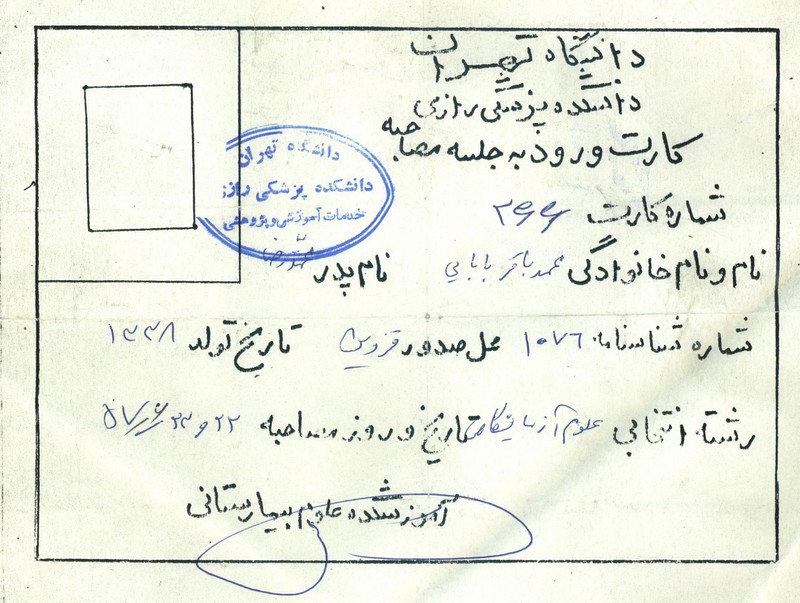 دانشگاه تهران
دانشکده پزشکی رازی
کارت ورود به جلسه مصاحبه
دانشگاه تهران
دانشکده پزشکی رازی
خدمات آموزشی و پژوهشی
شماره کارت
نام و نام خانوادگی محمد باقر بابایی نام پدر محمدرضا
شماره شناسنامه ۱۰۷۶ محل صدور قزوین تاریخ تولد ۱۳۳۸
رشته انتخابی علوم آزمایشگاهی تاریخ و روز مصاحبه ۲۲ و ۲۳
آموزشکده علوم بیمارستانی